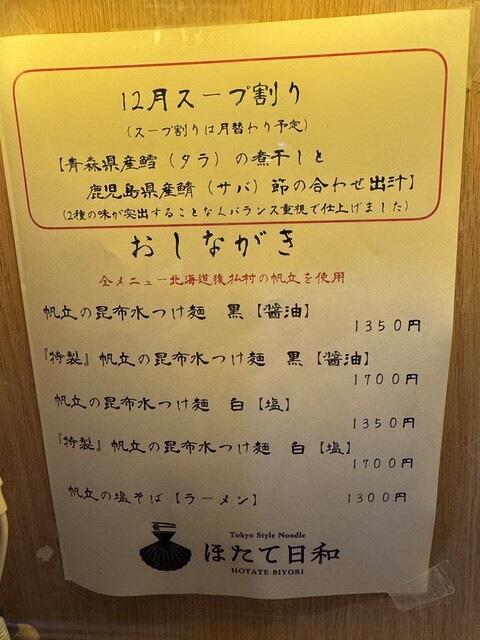 12月スープ割り
（スープ割りは月替わり予定）
【青森県産鱈（タラ）の煮干しと
鹿児島県産鯖（サバ）節の合わせ出汁】
（2種の味が突出することなくバランス重視で仕上げました）
おしながき
全メニュー北海道後払村の帆立を使用
帆立の昆布水つけ麺 黒【醤油】
1350円
『特製』帆立の昆布水つけ麺 黒【醤油】
1700円
帆立の昆布水つけ麺 白【塩】
1350円
『特製』帆立の昆布水つけ麺 白【塩】
1700円
帆立の塩そば【ラーメン】
1300円
Tokyo Style Noodle
ほたて日和
HOTATE BIYORI